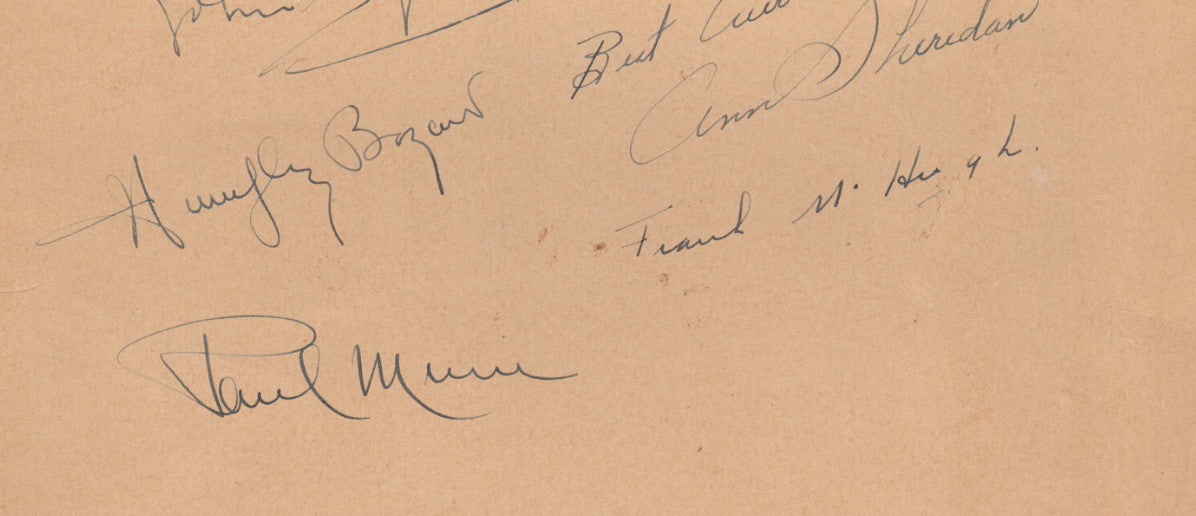 John
Best
Ann Sheridan
Humphrey Bogart
Frank McHugh.
Paul Muni